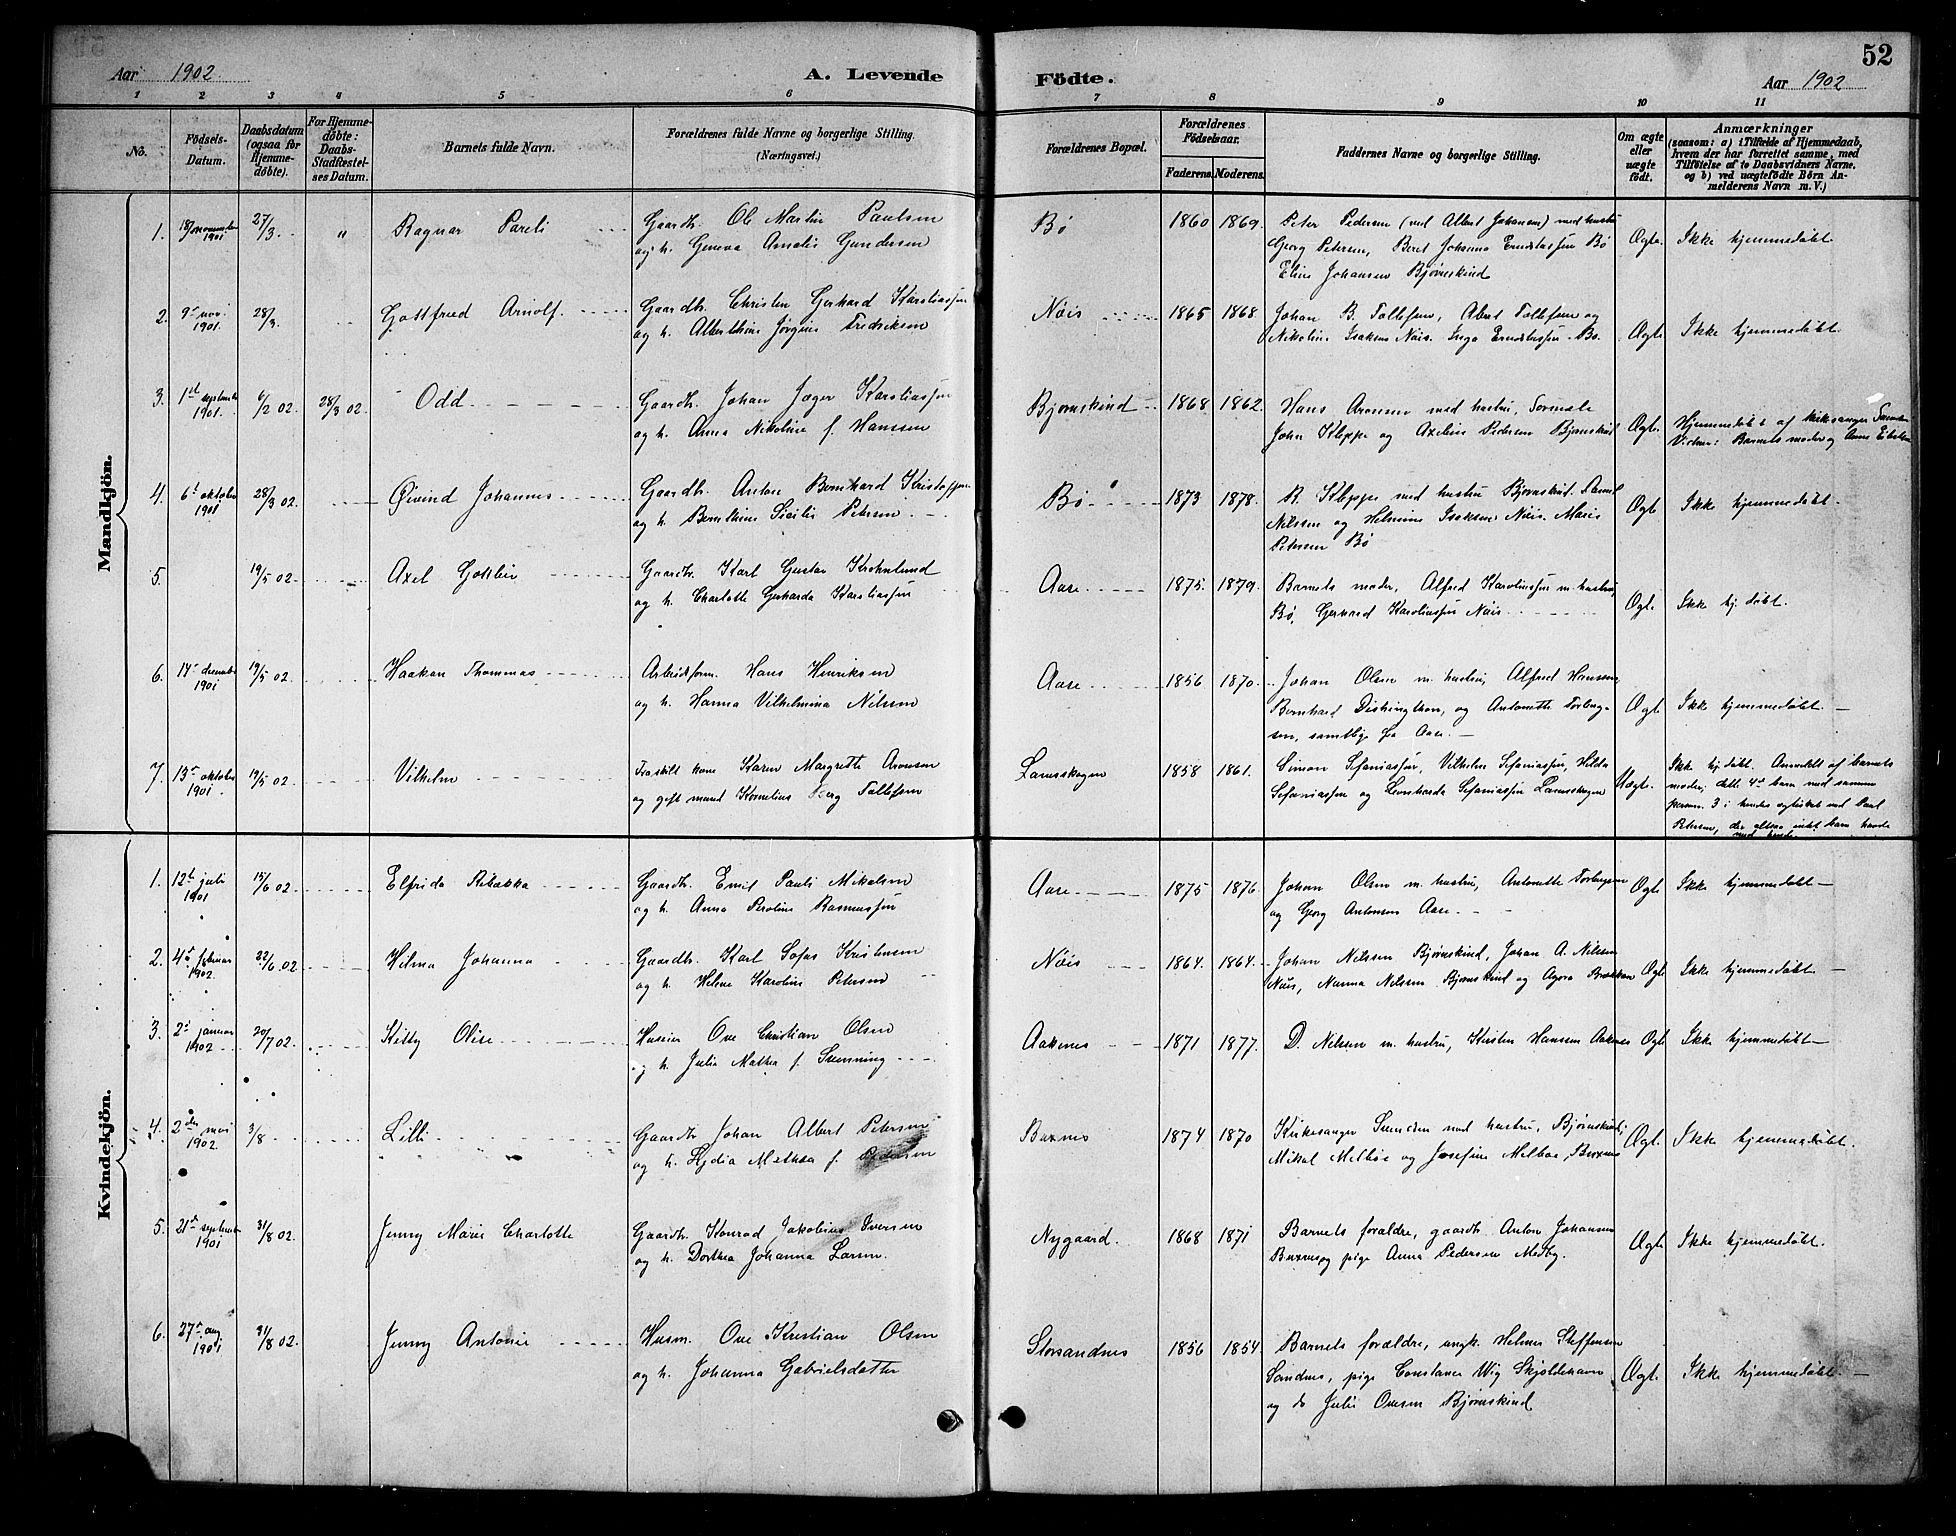 52
Aar 1902
A. Levende
Födte.
Aar 1902
1 2 3 4 5 6 7 8 9 10 11
No.
Födsels-
Datum.
Daabsdatum
(ogsaa for
Hjemme-
döbte).
For Hjemme-
döbte:
Daabs-
Stadfæstel-
ses Datum.
Barnets fulde Navn.
Forældrenes fulde Navne og borgerlige Stilling.
(Næringsvei.)
Forældrenes Bopæl.
Forældrenes
Födselsaar.
Faderens. Moderens.
Faddernes Navne og borgerlige Stilling.
Om ægte
eller
uægte
födt.
Anmærkninger
(saasom: a) i Tilfælde af Hjemmedaab,
hvem der har forrettet samme, med
Tilföielse af to Daabsvidners Navne.
og b) ved uægtefödte Börn An-
melderens Navn m. V.)
Mandkjön.
1. 18/november 1901 27/3. " Ragnar Pareli
Gaardb. Ole Martin Paulsen
og h. Geneva Amalie Gundersen
Bø 1860 1869.
Peter Pedersen (ved Albert Johansen) med hustru
Georg Petersen, Beret Johanna Bø
Eline Johansen Bjørnskind
Ægte. Ikke hjemmedøbt.
2. 9de nov. 1901. 28/3. Gottfried Arnolf.
Gaardb. Christen Gerhard Karoliassen
og h. Alberthine Jørgine Fredriksen
Nöis 1865 1868
Johan B. Tollefsen, Abert Tollefsen og
Nikoline Isaksen Nöis. Inga Bø.
Ægte Ikke hjemmedøbt.
3. 1ste september 1901. 6/2 02. 28/3 02. Odd
Gaardb. Johan Jæger Karoliassen
og h. Anna Nikoline f. Hanssen
Bjørnskind 1868 1862.
Hans Aronsen med hustru, Tormale
John Kleppe og Axeline Pedersen Bjørnskind
Ægte. Hjemmedøbt af kirksanger
Vidner: Barnets moder og Anna
4. 6te oktober 1901 28/3 02. Øivind Johannes
Gaardb. Anton Bernhard Kristoffersen
og h. Bernthine Sicilie Petersen
Bø 1873 1878.
R. Kleppe med hustru Bjørnskind.
Nilssen og Helmine Isaksen Nöis. Marie
Petersen Bø
Ægte Ikke hjemmedøbt.
5. 19/5 02. Axel Gotleiv
Gaardb. Karl Gustav Krohnlund
og h. Charlotte Gerharda Karoliassen
Aase 1875. 1879.
Barnets moder, Alfred Karoliussen m. hustru,
Bø, Gerhard Karoliussen Nöis
Ægte Ikke hj. døbt.
6. 14de december 1901 19/5 02. Haakon Thommas
Arbeidsform. Hans Henriksen
og h. Hanna Vilhelmina Nilsen
Aase 1856 1870.
Johan Olsen m. hustru, Alfred Hansen,
Bernhard Dishington, og Antonette Torberg-
sen, samtlige fra Aase.
Ægte Ikke hjemmedøbt.
7. 13de oktober 1901 19/5 02. Vilhelm
Fraskilt kone Karen Margrethe Aronsen
og gift mand Kornelius Berg Tollefsen
Lanesskogen 1858 1861.
Simon Sefaniassen, Vilhelm Sefaniassen, Hilda
Sefaniassen og Leonharda Sefaniassen Lanesskogen
Uægte. Ikke hj. døbt. Anmeldt af barnets
moder; dette 4de barn med samme
person. 3 i hendes egteskab med Paul
Petersen, der altsaa intet barn havde
med hende
Kvindekjön.
1. 12te juli 1901 15/6 02 Elfrida Rebekka
Gaardb. Emil Pauli Mikalsen
og h. Anna Peroline Rasmussen
Aase 1875 1876
Johan Olsen m. hustru, Antonette Torbergsen
og Georg Antonsen Aase.
Ægte Ikke hjemmedøbt
2. 4de februar 1902. 22/6 02 Hilma Johanna
Gaardb. Karl Sofus Kristensen
og h. Helene Karoline Petersen
Nöis 1864. 1864.
Johan Nilssen Bjørnskind, Johan A. Nilssen
Nöis, Nanna Nilssen Bjørnskind og Agora
Ægte Ikke hjemmedøbt
3. 2de januar 1902 20/7 02. Kitty Olise
Husmer Ove Christian Olsen
og h. Julia Mathea f. Svenning
Aakenes 1871 1877.
D. Nilssen m. hustru, Kirsten Hanssen Aakenes
Ægte Ikke hjemmedøbt
4. 2den mai 1902 3/8 Lilli
Gaardb Johan Albert Petersen
og h. Lydia Mathea f. Pedersen
Buxnes 1874 1870
Kirkesanger med hustru, Bjørnskind;
Mikal Melbøe og Josefine Melbøe, Buxnes
Ægte Ikke hjemmedøbt.
5. 21de september 1901 31/8 02. Jenny Marie Charlotte
Gaardb. Konrad Jakobine Iversen
og h. Dorthea Johanna Larsen.
Nygaard. 1868 1871
Barnets forældre, gaardb. Anton Johansen
Buxnes og pige Anna Pedersen Medby.
Ægte Ikke hjemmedøbt.
6. 27de aug. 1901 31/8 02. Jenny Antonie
Husm. Ove Kristian Olsen
og h. Johanna Gabrielsdatter
Storsandnes 1856 1854.
Barnets forældre, ungk. Helmer Steffensen
Sandnes, pige Constance Wig Skjoldehavn
og do Julie Ovesen Bjørnskind
Ægte. Ikke hjemmedøbt.